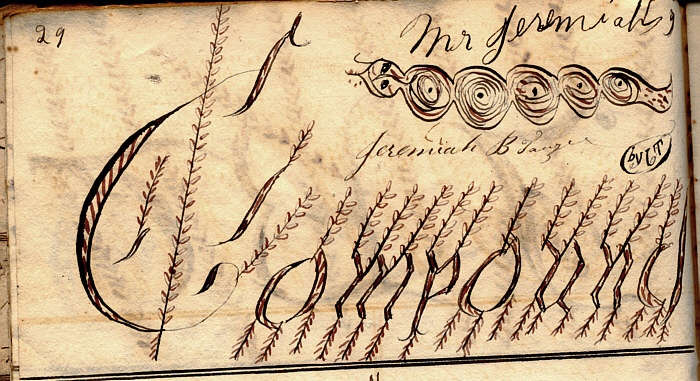 29
Mr Jeremiah
Jeremiah B
BULT
Compound